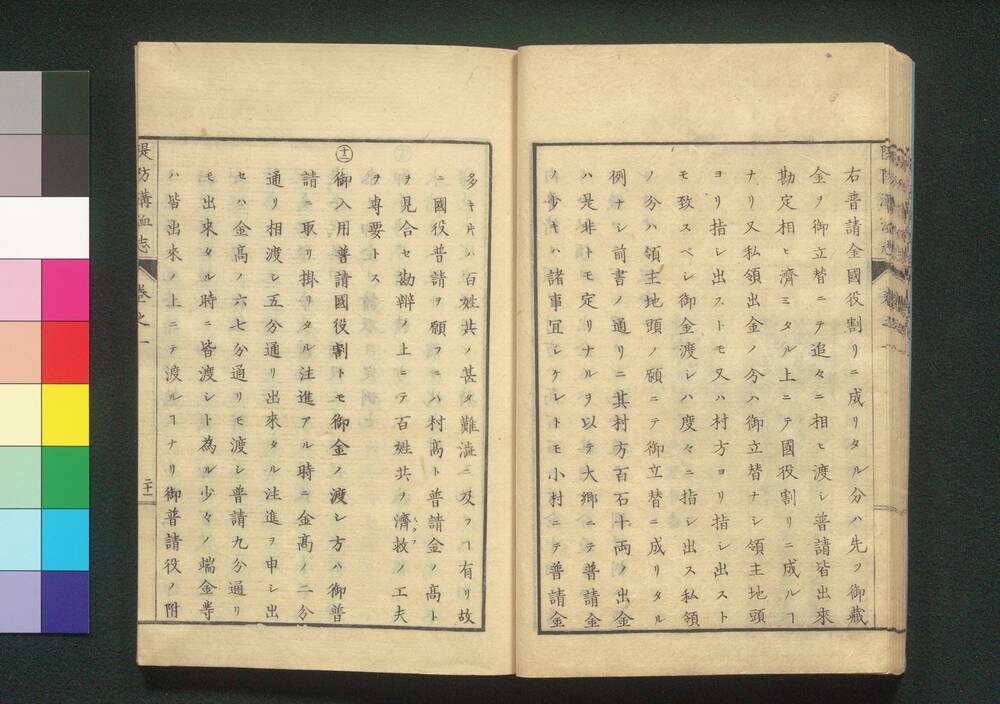 右普請金國役割リニ成リタル分ハ先ツ御藏
金ヲ御立替ニテ追々ニ相ヒ渡シ普請皆出來
勘定相ヒ濟ミタル上ニテ國役割リニ成ルヿ
ナリ又私領出金ノ分ハ御立替ナシ領主地頭
ヨリ指シ出ストモ又ハ村方ヨリ指シ出スト
モ致スベシ御金渡シハ度々ニ指シ出ス私領
ノ分ハ領主地頭ノ願ニテ御立替ニ成リタル
例ナシ前書ノ通リニ其村方百石十両ノ出金
ハ是非トモ定リナルヲ以テ大郷ニテ普請金
ノ少キハ諸事冝シケレトモ小村ニテ普請金
多キ片ハ百姓共ノ甚タ難澁ニ及フヿ有リ故
ニ國役普請ヲ願フニハ村髙ト普請金ノ髙ト
ヲ見合セ勘辨ノ上ニテ百姓共ヲ濟救ノ工夫
ヲ専要トス
十二 御入用普請國役割トモ御金ノ渡シ方ハ御普
請ニ取リ掛リタル注進アル時ニ金髙ノ二分
通リ相渡シ五分通リ出來タル注進ヲ申シ出
セハ金髙ノ六七分通リモ渡シ普請九分通リ
モ出來タル時ニ皆渡シト為ル少々ノ端金等
ハ皆出來ノ上ニテ渡ルヿナリ御普請役ノ附
堤防溝洫志
巻之一
二十一